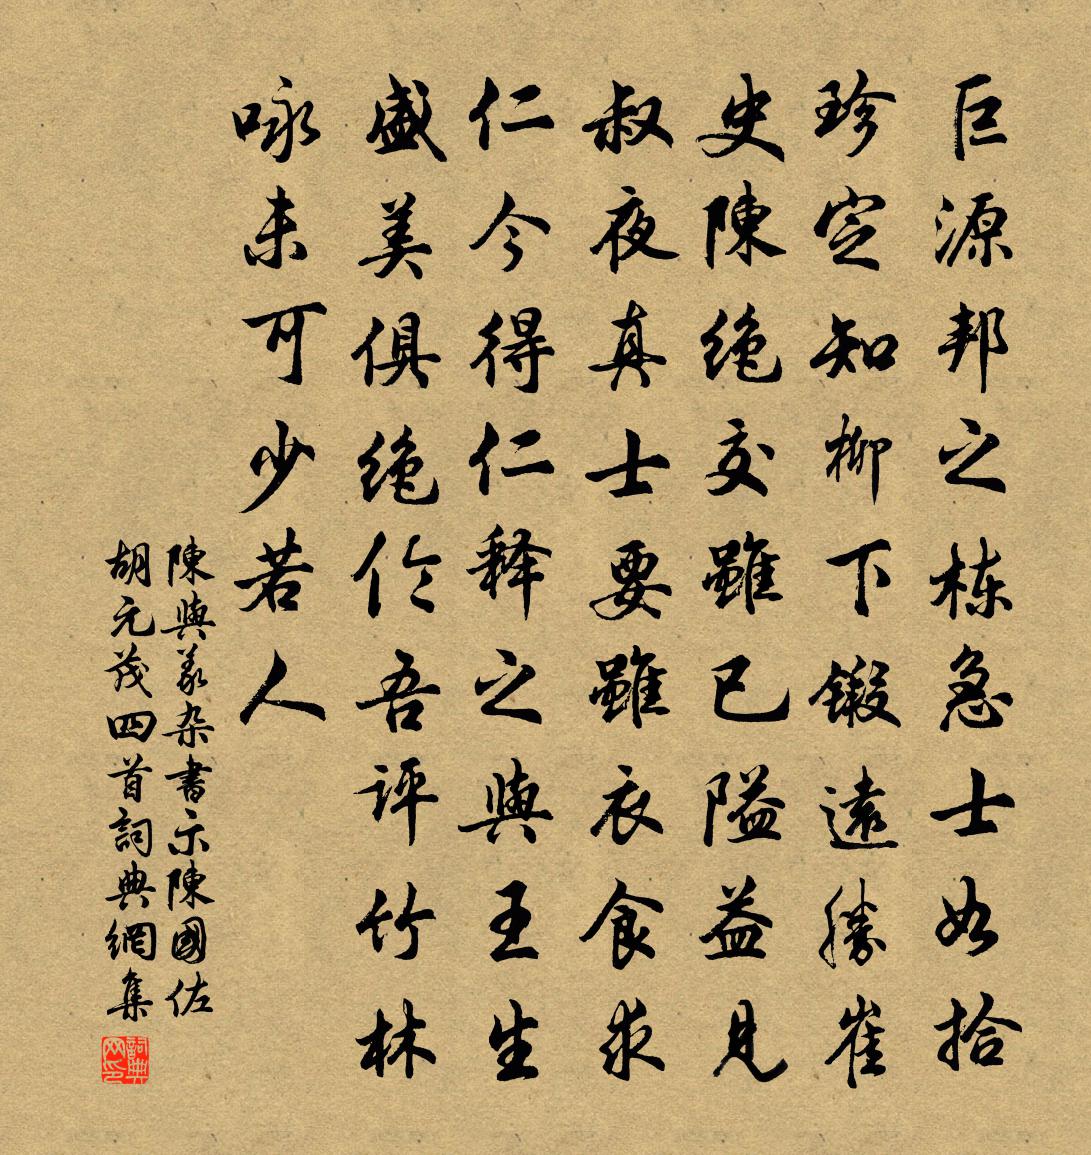 巨源邦之栋急士如拾
珍定知柳下鍛遠勝崔
史陳绝交雖已隘益見
叔夜真士要雖衣食求
仁今得仁释之與王生
盛美俱绝伫吾評竹林
咏未可少若人
陳與義杂書示陳國佐
胡元茂四首詞典網集
詞典
网印